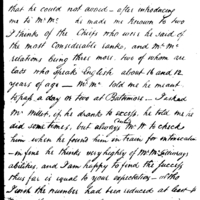 that he could not avoid. – after introducing
me to Mr M. he made me known to two
I thinks of the Chiefs who were he said of
the most Considerable ranks, and Mr Mc
relations being three more, two of whom are
lads who speak English about 16 and 12
years of age — Mr M. told me he meant
to pass a day or two at Baltimore – I asked
Mr , if he drank to excess. he told me he
did sometimes, but always Mr to check
him when he found him in train for
– in fine he thinks very highly of Mr
abilities, and I am happy to find the success
thus far is equal to your expectation. –
I wish the number had been reduced at least